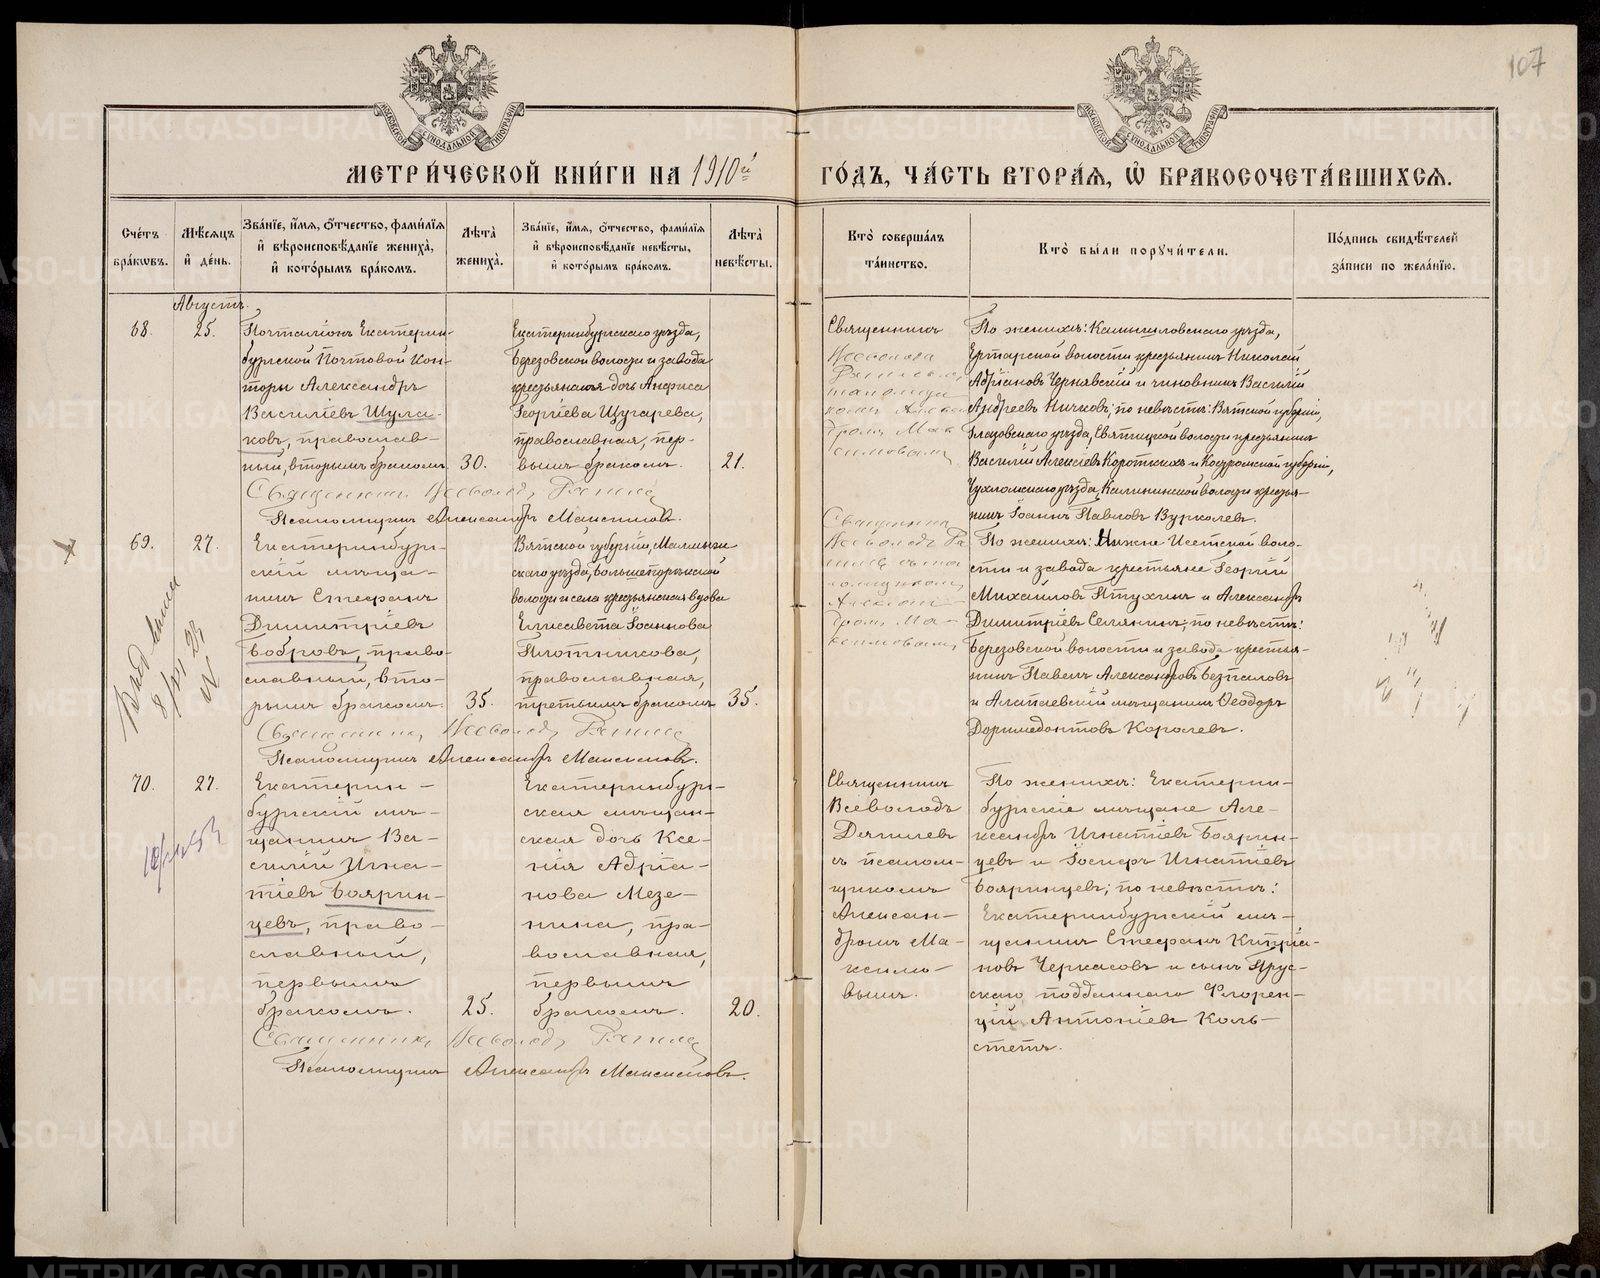 107
МОСКОВСКОЙ СУНОДАЛЬНОЙ ТИПОГРАФІИ
МОСКОВСКОЙ СУНОДАЛЬНОЙ ТИПОГРАФІИ
МЕТРИ́ЧЕСКОЙ КНИ́ГИ НА 1910й ГО́ДЪ, ЧА́СТЬ ВТОРА́Я, Ѽ БРАКОСОЧЕТА́ВШИХСЯ.
Сче́тъ
бра́кѡвъ.
Мѣ́сяцъ
и҆ де́нь.
Зва́нїе, и҆́мя, ѻ҆́тчество, фами́лїя
и҆ вѣроисповѣ́данїе жениха̀,
и҆ кото́рымъ бра́комъ.
Лѣта̀
жениха̀.
Зва́нїе, и҆́мя, ѻ҆́тчество, фами́лїя
и҆ вѣроисповѣ́данїе невѣ́сты,
и҆ кото́рымъ бра́комъ.
Лѣта̀
невѣ́сты.
Кто̀ соверша́лъ
та́инство.
Кто̀ бы́ли порꙋчи́тели.
По́дпись свидѣ́телей
за́писи по жела́нїю.
Августъ.
68.
25.
Почталіонъ Екатерин-
бургской Почтовой Кон-
торы Александръ
Василіевъ Шула-
ковъ, православ-
ный, вторымъ бракомъ.
30.
Екатеринбургскаго уѣзда,
Березовской волости и завода
крестьянская дочь Анфиса
Георгіева Щугарева,
православная, пер-
вымъ бракомъ.
21.
Священникъ Всеволодъ
Псаломщикъ Александръ Максимовъ.
Священникъ
Всеволодъ
По женихѣ: Камышловскаго уѣзда,
Ертарской волости крестьянинъ Николай
Адріановъ Чернявскій и чиновникъ Василій
Андреевъ Ничковъ; по невѣстѣ: Вятской губерніи,
Глазовскаго уѣзда, Святицкой волости крестьянинъ
Василій Алексіевъ Коротких и Костромской губерніи,
Чухломскаго уѣзда, Калининской волости крестья-
нинъ Іоаннъ Павловъ
69.
27.
Екатеринбург-
скій мѣща-
нинъ Стефанъ
Димитріевъ
Бобровъ, право-
славный, вто-
рымъ бракомъ.
35.
Вятской губерніи, Малмыж-
скаго уѣзда,
волости и села крестьянская вдова
Елисавета Іоаннова
Плотникова,
православная,
третьимъ бракомъ
35.
Священникъ Всеволодъ
Псаломщикъ Александръ Максимовъ.
Священникъ
Всеволодъ
По женихѣ: Нижне Исетской воло-
сти и завода крестьяне Георгій
Михаиловъ Птухинъ и Александръ
Димитріевъ Селянинъ; по невѣстѣ:
Березовской волости и завода крестья-
нинъ Павелъ Александровъ Безпаловъ
и Алапаевскій мѣщанинъ Ѳеодоръ
Доримедонтовъ Королевъ.
70.
27.
Екатерин-
бургскій мѣ-
щанинъ Ва-
силій Игна-
тіевъ Боярин-
цевъ, право-
славный,
первымъ
бракомъ.
25.
Екатеринбург-
ская мѣщан-
ская дочь Ксе-
нія Адріа-
нова Мезе-
нина, пра-
вославная,
первымъ
бракомъ.
20.
Священникъ Всеволодъ
Псаломщикъ Александръ Максимовъ.
Священникъ
Всеволодъ
съ псалом-
щикомъ
Алексан-
дромъ Ма-
ксимо-
вымъ.
По женихѣ: Екатерин-
бургскіе мѣщане Але-
ксандръ Игнатіевъ Боярин-
цевъ и Іосифъ Игнатіевъ
Бояринцевъ; по невѣстѣ:
Екатеринбургскій мѣ-
щанинъ Стефанъ Кипріа-
новъ Черкасовъ и сынъ Прус-
скаго подданнаго Флорен-
цій Антоніевъ Коль-
стетъ.
METRIKI.GASO-URAL.RU